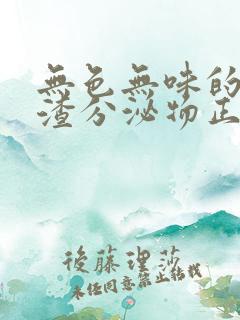 無色無味的
渣分泌物正
後藤理莎
未任同意禁止結載